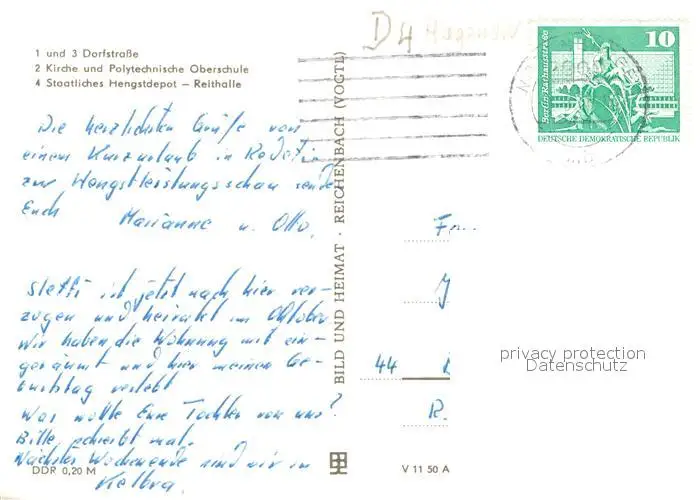 1 und 3 Dorfstraße
2 Kirche und Polytechnische Oberschule
4 Staatliches Hengstdepot – Reithalle
D4
Die herzlichsten Grüße von
einem Kurzurlaub in Redefin
zur Hengstleistungsschau sende
Euch Marianne u. Otto.
Steffi ist jetzt nach hier ver-
zogen und heiratet im Oktober
Wir haben die Wohnung mit ein-
geräumt und hier meinen Ge-
burtstag verlebt
Was wollte Eure Tochter von uns?
Bitte schreibt mal.
Nächstes Wochenende sind wir in
Kelbra.
DDR 0,20 M
BILD UND HEIMAT · REICHENBACH (VOGTL)
V 11 50 A
10
Berlin-Rathausstraße
DEUTSCHE DEMOKRATISCHE REPUBLIK
44
privacy protection
Datenschutz